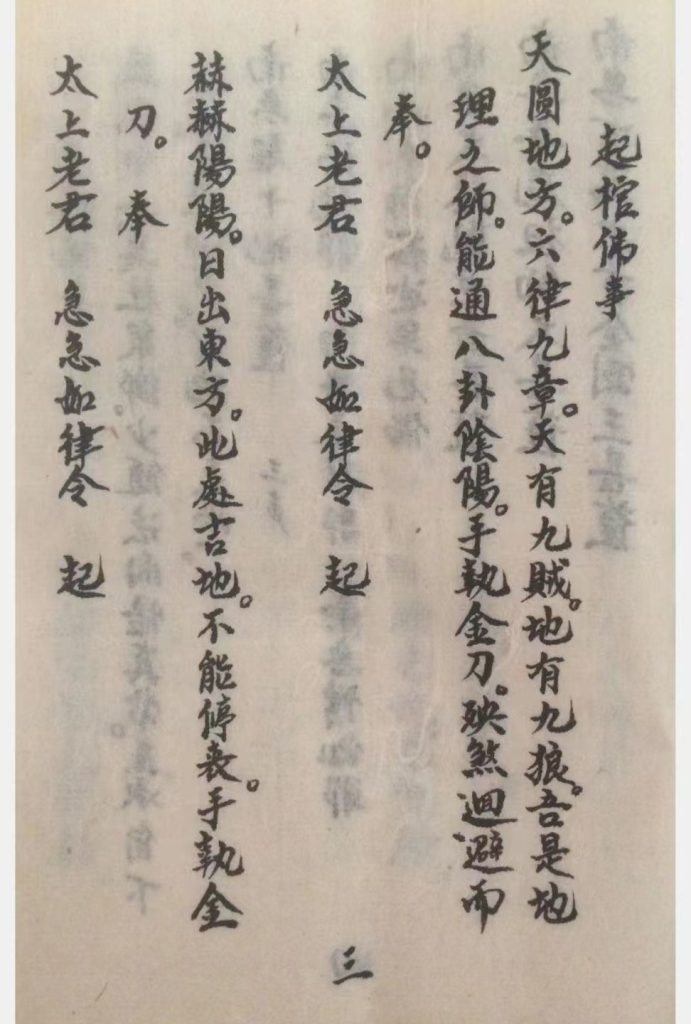 起棺佛事
天圓地方。六律九章。天有九賊。地有九狼。吾是地
理之師。能通八卦陰陽。手執金刀。殃煞迴避而
奉。
太上老君 急急如律令 起
赫赫陽陽。日出東方。此處吉地。不能停喪。手執金
刀。奉
太上老君 急急如律令 起
三